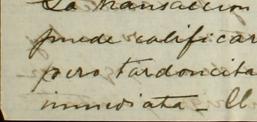 La transaccion
puede calificar
pero tardoncita
inmediata - El